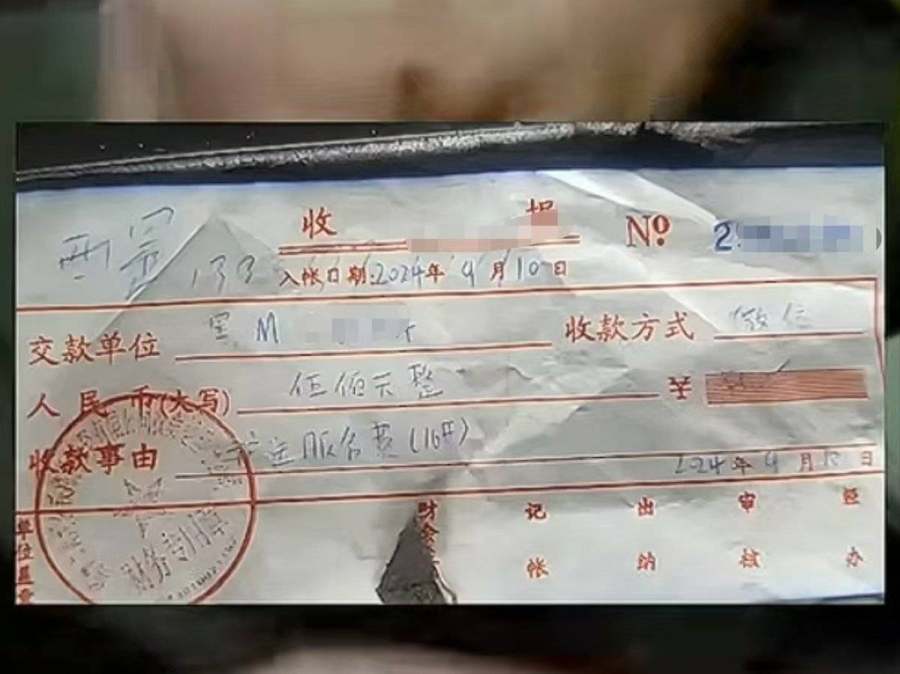 收 据 № 2
西 133 入帐日期:2024年4月10日
交款单位 黑M 收款方式 微信
人民币(大写) 伍佰元整 ¥
收款事由 运服务费(16开)
2024年4月10日
财 记 出 审 经
会 帐 纳 核 办
单位盖章
财务专用章